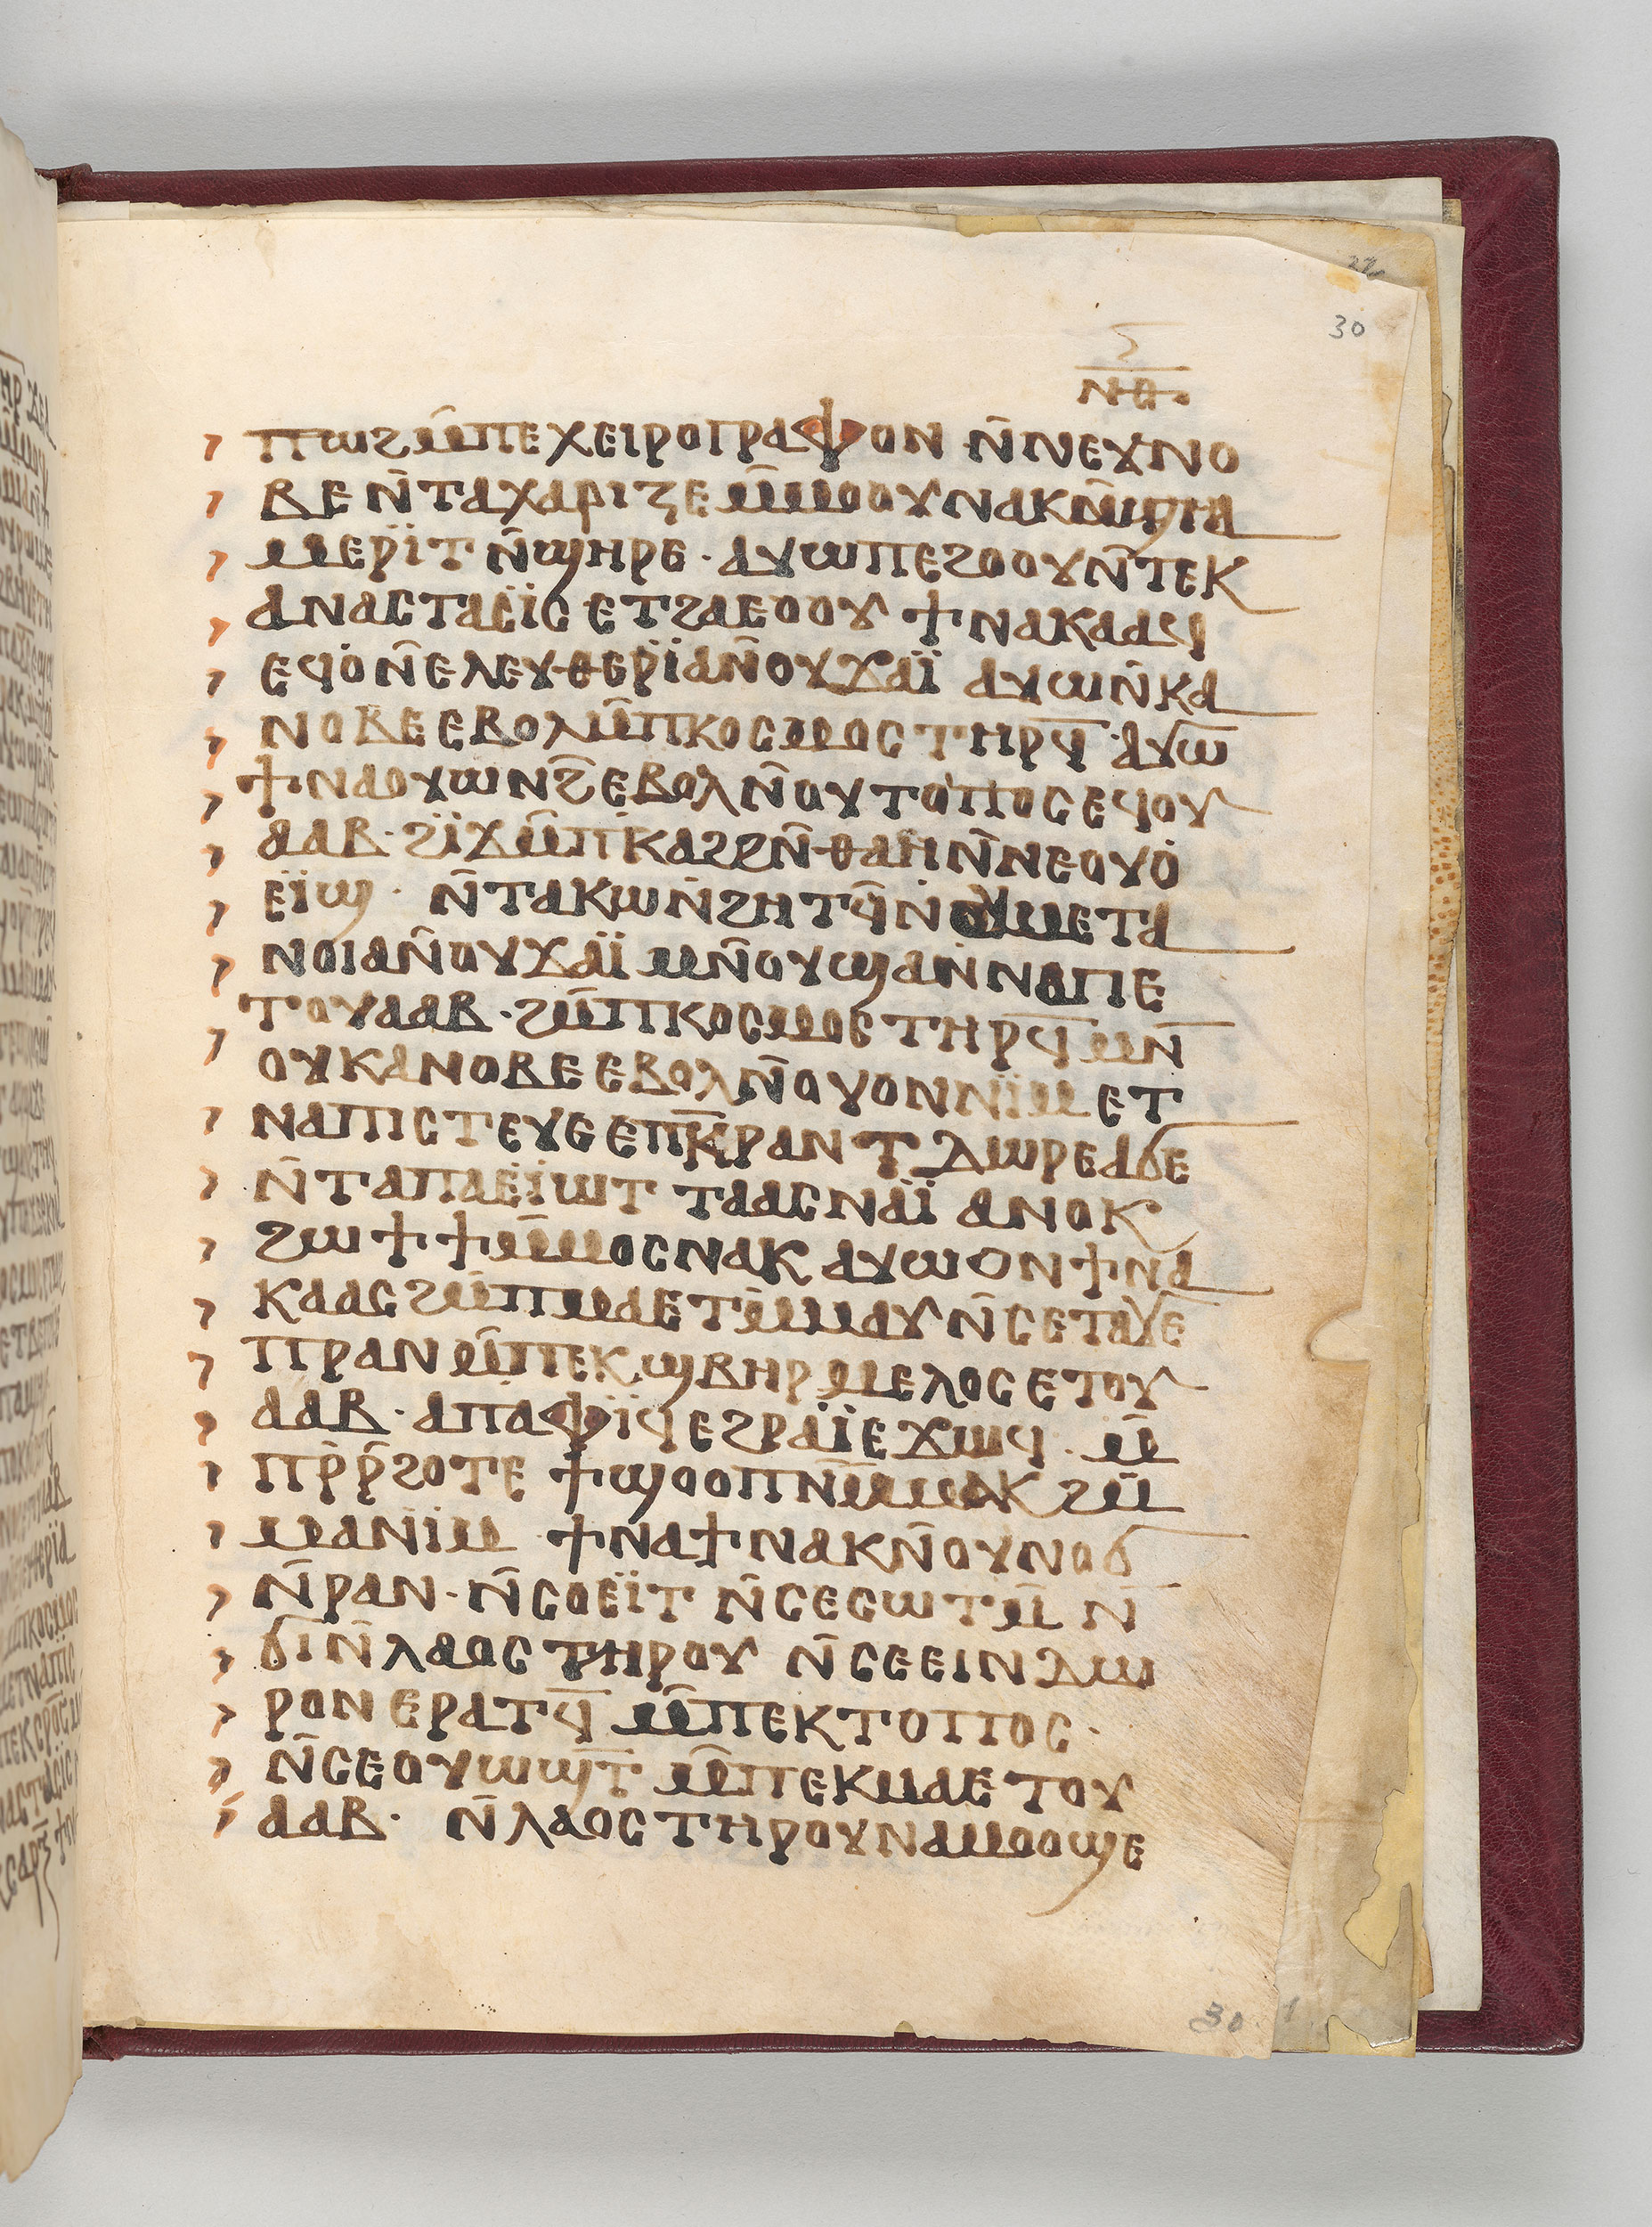 30
ⲛⲑ
ⲡⲱϩⲙ̄ⲡⲉⲭⲉⲓⲣⲟⲅⲣⲁⲫⲟⲛ ⲛ̄ⲛⲉⲩⲛⲟ
ⲃⲉ ⲛ̄ⲧⲁⲭⲁⲣⲓⲍⲉ ⲙ̄ⲙⲟⲟⲩⲛⲁⲕ
ⲙⲉⲣⲓ̈ⲧ ⲛ̄ϣⲏⲣⲉ · ⲁⲩⲱⲡⲉϩⲟⲟⲩⲛ̄ⲧⲉⲕ
ⲁⲛⲁⲥⲧⲁⲥⲓ̈ⲥ ⲉⲧϩⲁⲉⲟⲟⲩ ϯⲛⲁⲕⲁⲁϥ
ⲉϥⲟ̇ⲛ̄ⲉⲗⲉⲩⲑⲉⲣⲓ̈ⲁⲛ̄ⲟⲩϫⲁⲓ̈ ⲁⲩⲱⲛ̄ⲕⲁ
ⲛⲟⲃⲉⲉⲃⲟⲗⲙ̄ⲡⲕⲟⲥⲙⲟⲥⲧⲏⲣϥ̄ · ⲁⲩⲱ̄
ϯⲛⲁⲟⲩⲱⲛϩ̄ⲉⲃⲟⲗⲛ̄ⲟⲩⲧⲟⲡⲟⲥⲉϥⲟⲩ
ⲁⲁⲃ · ϩⲓ̈ϫⲙ̄ⲡⲕⲁϩϩⲛ̄ⲑⲁⲏⲛ̄ⲛⲉⲟⲩⲟ̇
ⲉⲓ̈ϣ · ⲛ̄ⲧⲁⲕⲱⲛ̇ϩⲏⲧϥ̄ⲛ̇ⲟⲩⲙⲉⲧⲁ
ⲛⲟⲓⲁⲛ̄ⲟⲩϫⲁⲓ̈ ⲙⲛ̄ⲟⲩϣⲁⲛ̇ⲛⲁⲡⲉ
ⲧⲟⲩⲁⲁⲃ · ϩⲙ̄ⲡⲕⲟⲥⲙⲟⲥⲧⲏⲣϥ̄ⲙⲛ̄
ⲟⲩⲕⲁⲛⲟⲃⲉⲉⲃⲟⲗⲛ̄ⲟⲩⲟⲛⲛⲓ̈ⲙ ⲉⲧ
ⲛⲁⲡⲓⲥⲧⲉⲩⲉⲉⲡⲕ̄ⲣⲁⲛ ⲧ ⲇⲱⲣⲉⲁϭⲉ
ⲛ̄ⲧⲁⲡⲁⲉⲓ̈ⲱⲧ ⲧⲁⲁⲥⲛⲁⲓ̈ ⲁⲛⲟⲕ
ϩⲱ ϯ ϯⲙ̄ⲙⲟⲥⲛⲁⲕ ⲁⲩⲱⲟⲛϯⲛⲁ
ⲕⲁⲁⲥϩⲙ̄ⲡⲙⲁⲉⲧⲙ̄ⲙⲁⲩ ⲛ̄ⲥⲉⲧⲁⲩⲉ
ⲡⲣⲁⲛ ⲙ̄ⲡⲉⲕϣⲃⲏⲣⲙⲉⲗⲟⲥⲉⲧⲟⲩ
ⲁⲁⲃ · ⲁⲡⲁⲫⲓ̈ϥⲉϩⲣⲁⲓ̈ⲉϫⲱϥ · ⲙ̄
ⲡⲣ̄ⲣ̄ϩⲟⲧⲉ ϯϣⲟⲟⲡⲛⲙ̄ⲙⲁⲕ ϩⲙ̄
ⲙⲁⲛⲓ̈ⲙ ϯⲛⲁϯⲛⲁⲕⲛ̄ⲟⲩⲛⲟϭ
ⲛ̄ⲣⲁⲛ · ⲛ̄ⲥⲟⲉⲓ̈ⲧ ⲛ̄ⲥⲉⲥⲱⲧⲙ̄ ⲛ̄
ϭⲓⲛ̄ⲗⲁⲟⲥ ⲧⲏⲣⲟⲩ ⲛ̄ⲥⲉⲉⲓⲛⲇⲱ
ⲣⲟⲛ ⲉⲣⲁⲧϥ̄ ⲙ̄ⲡⲉⲕⲧⲟⲡⲟⲥ ·
ⲛ̄ⲥⲉⲟⲩⲱϣⲧ̄ ⲙ̄ⲡⲉⲕⲙⲁⲉⲧⲟⲩ
ⲁⲁⲃ · ⲛ̄ⲗⲁⲟⲥⲧⲏⲣⲟⲩⲛⲁⲙⲟⲟϣⲉ
30